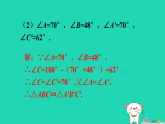 （2）∠A=70°，∠B=48°，∠A'=70°，
∠C'=62°．
解：∵∠A=70°，∠B=48°，
∴∠C=180°-（70°+48°）=62°．
∴∠C=∠C'=62°，又∠A=∠A'，
∴△ABC∽△A'B'C'．